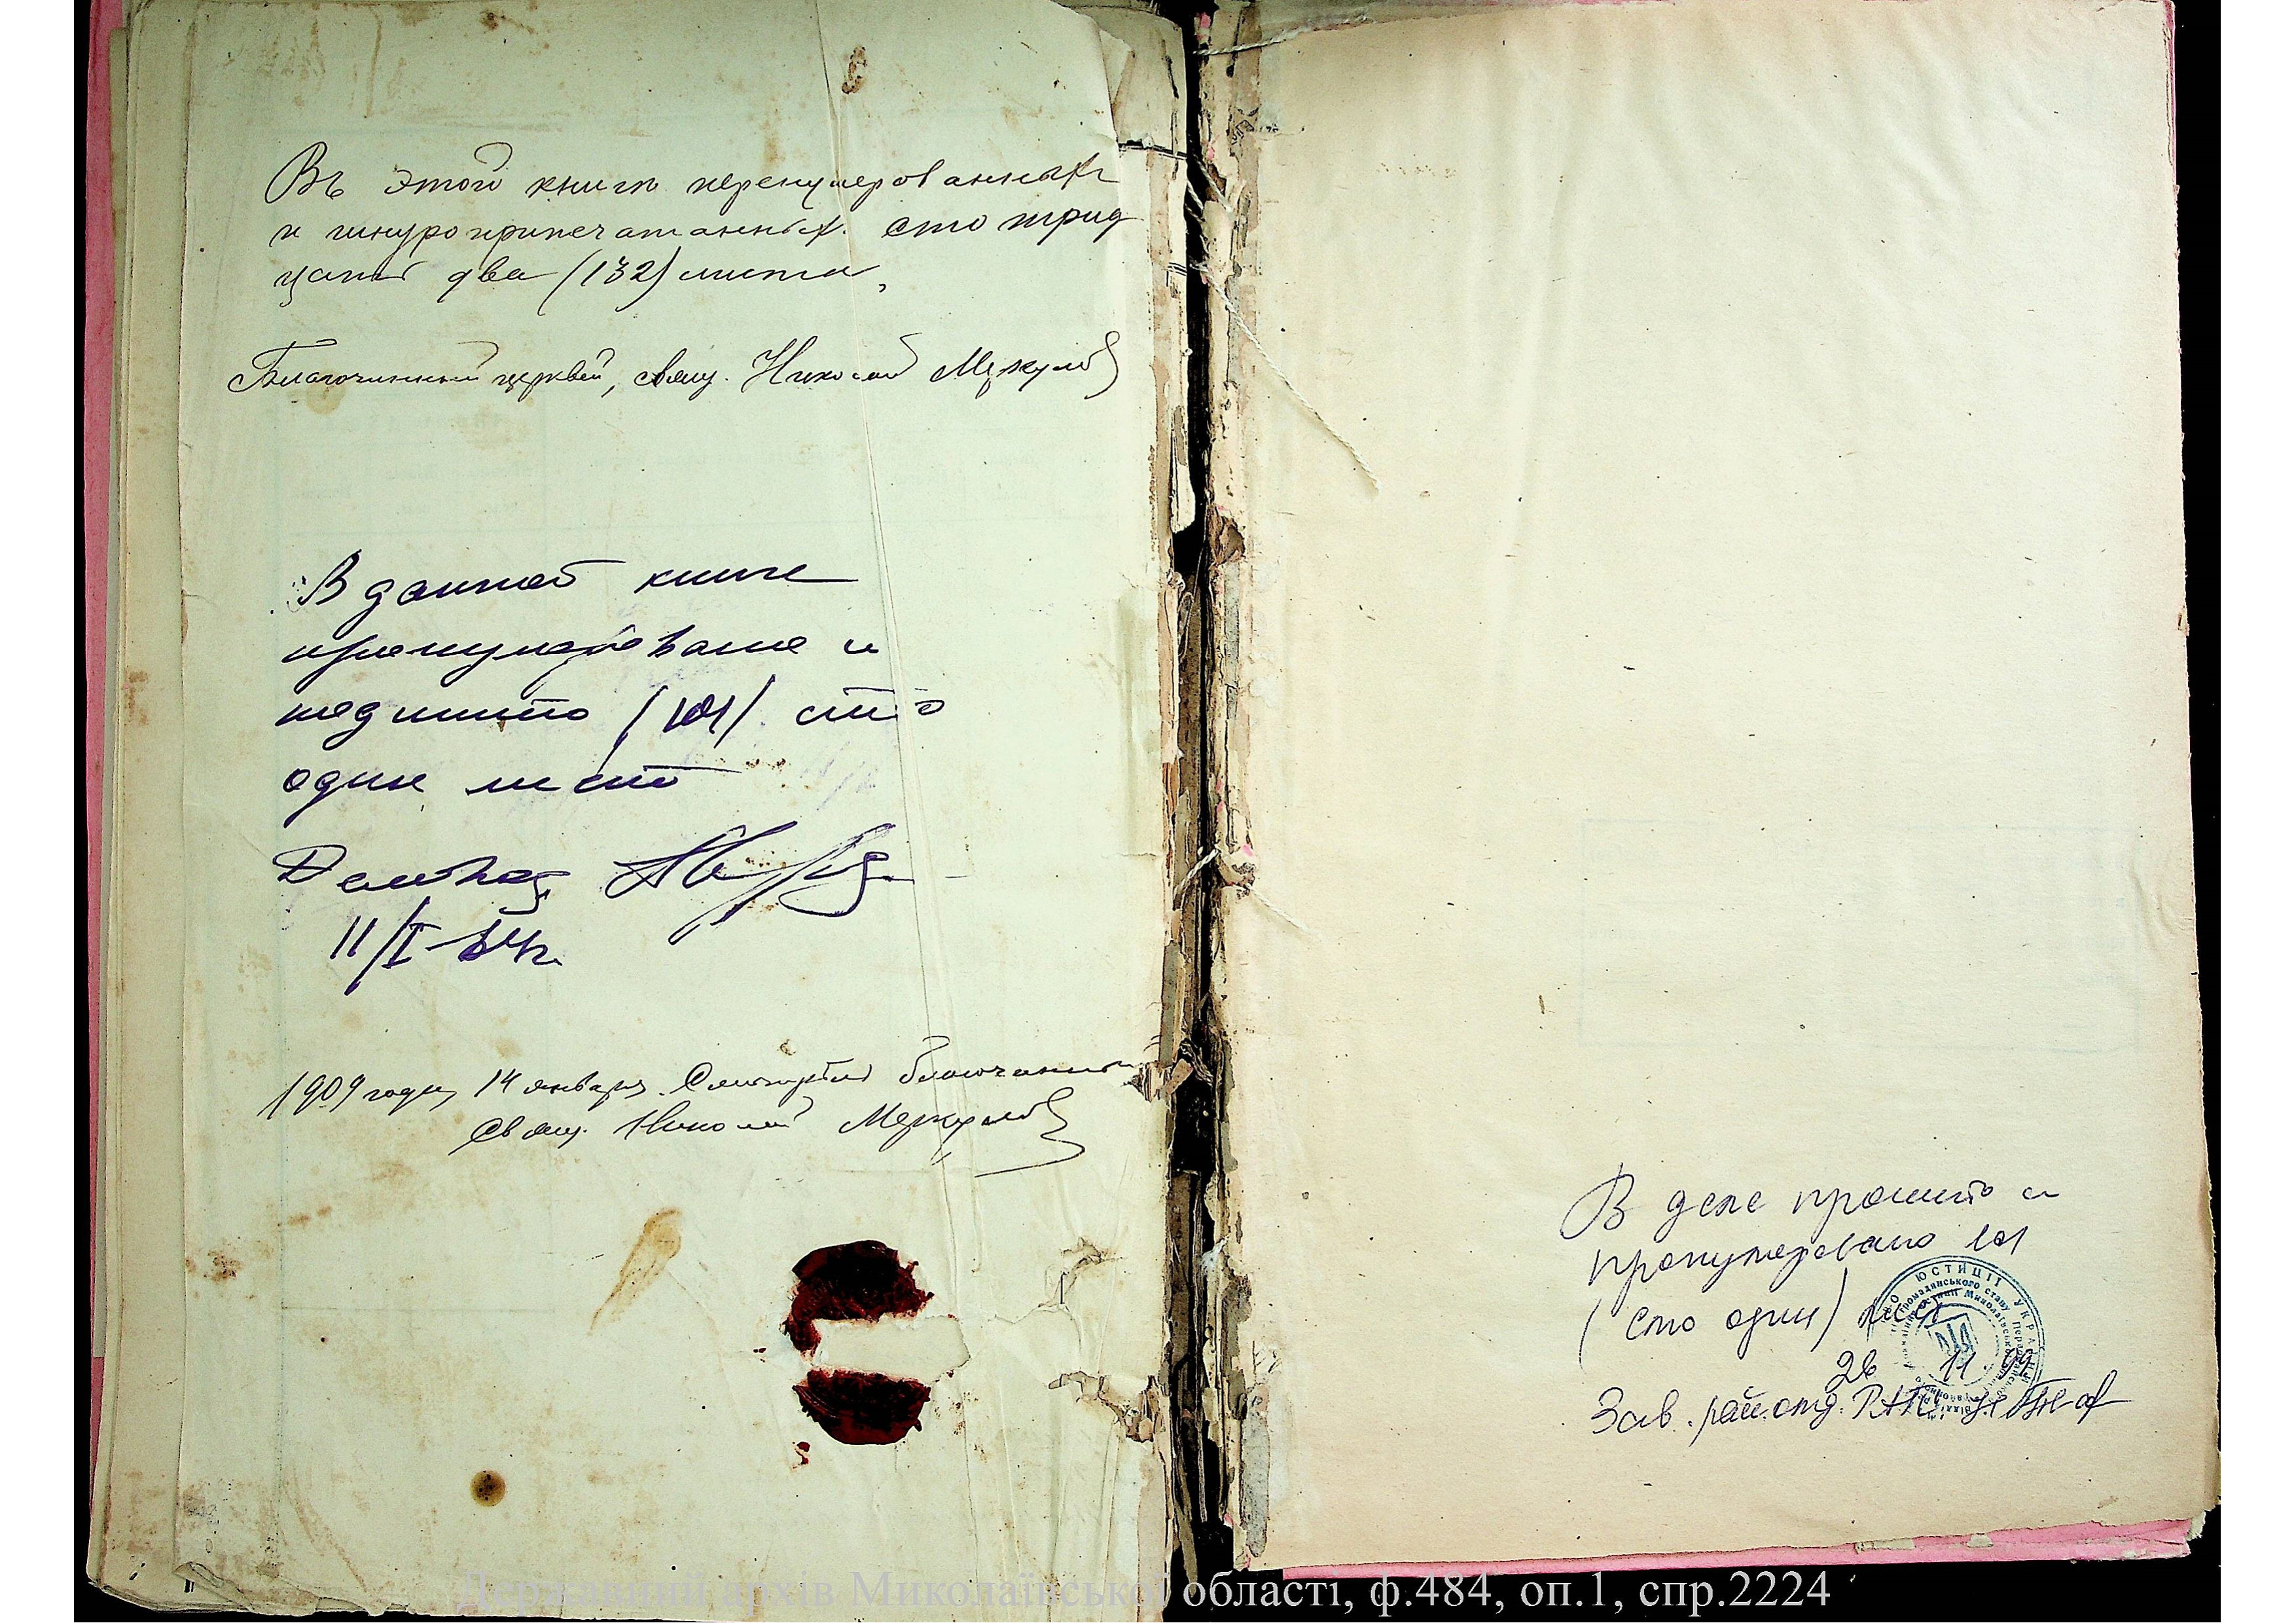 Въ этой книгѣ перенумерованныхъ
и шнуроприпечатанныхъ сто трид
цать два (132) листа,
Благочинный церквей, свящ. Николай Меркулов
В данной книге
пронумеровано и
подшито (101) сто
один лист
11/I-54г.
1909 года, 14 января. Смотрѣлъ благочинный
Свящ. Николай Меркулов
В деле прошито и
пронумеровано 101
(сто один) лист
26 11. 99
Зав. рай. отд. РАГС
ЮСТИЦІЇ УКРАЇНИ
громадянського стану
Державний архів Миколаївської області, ф.484, оп.1, спр.2224